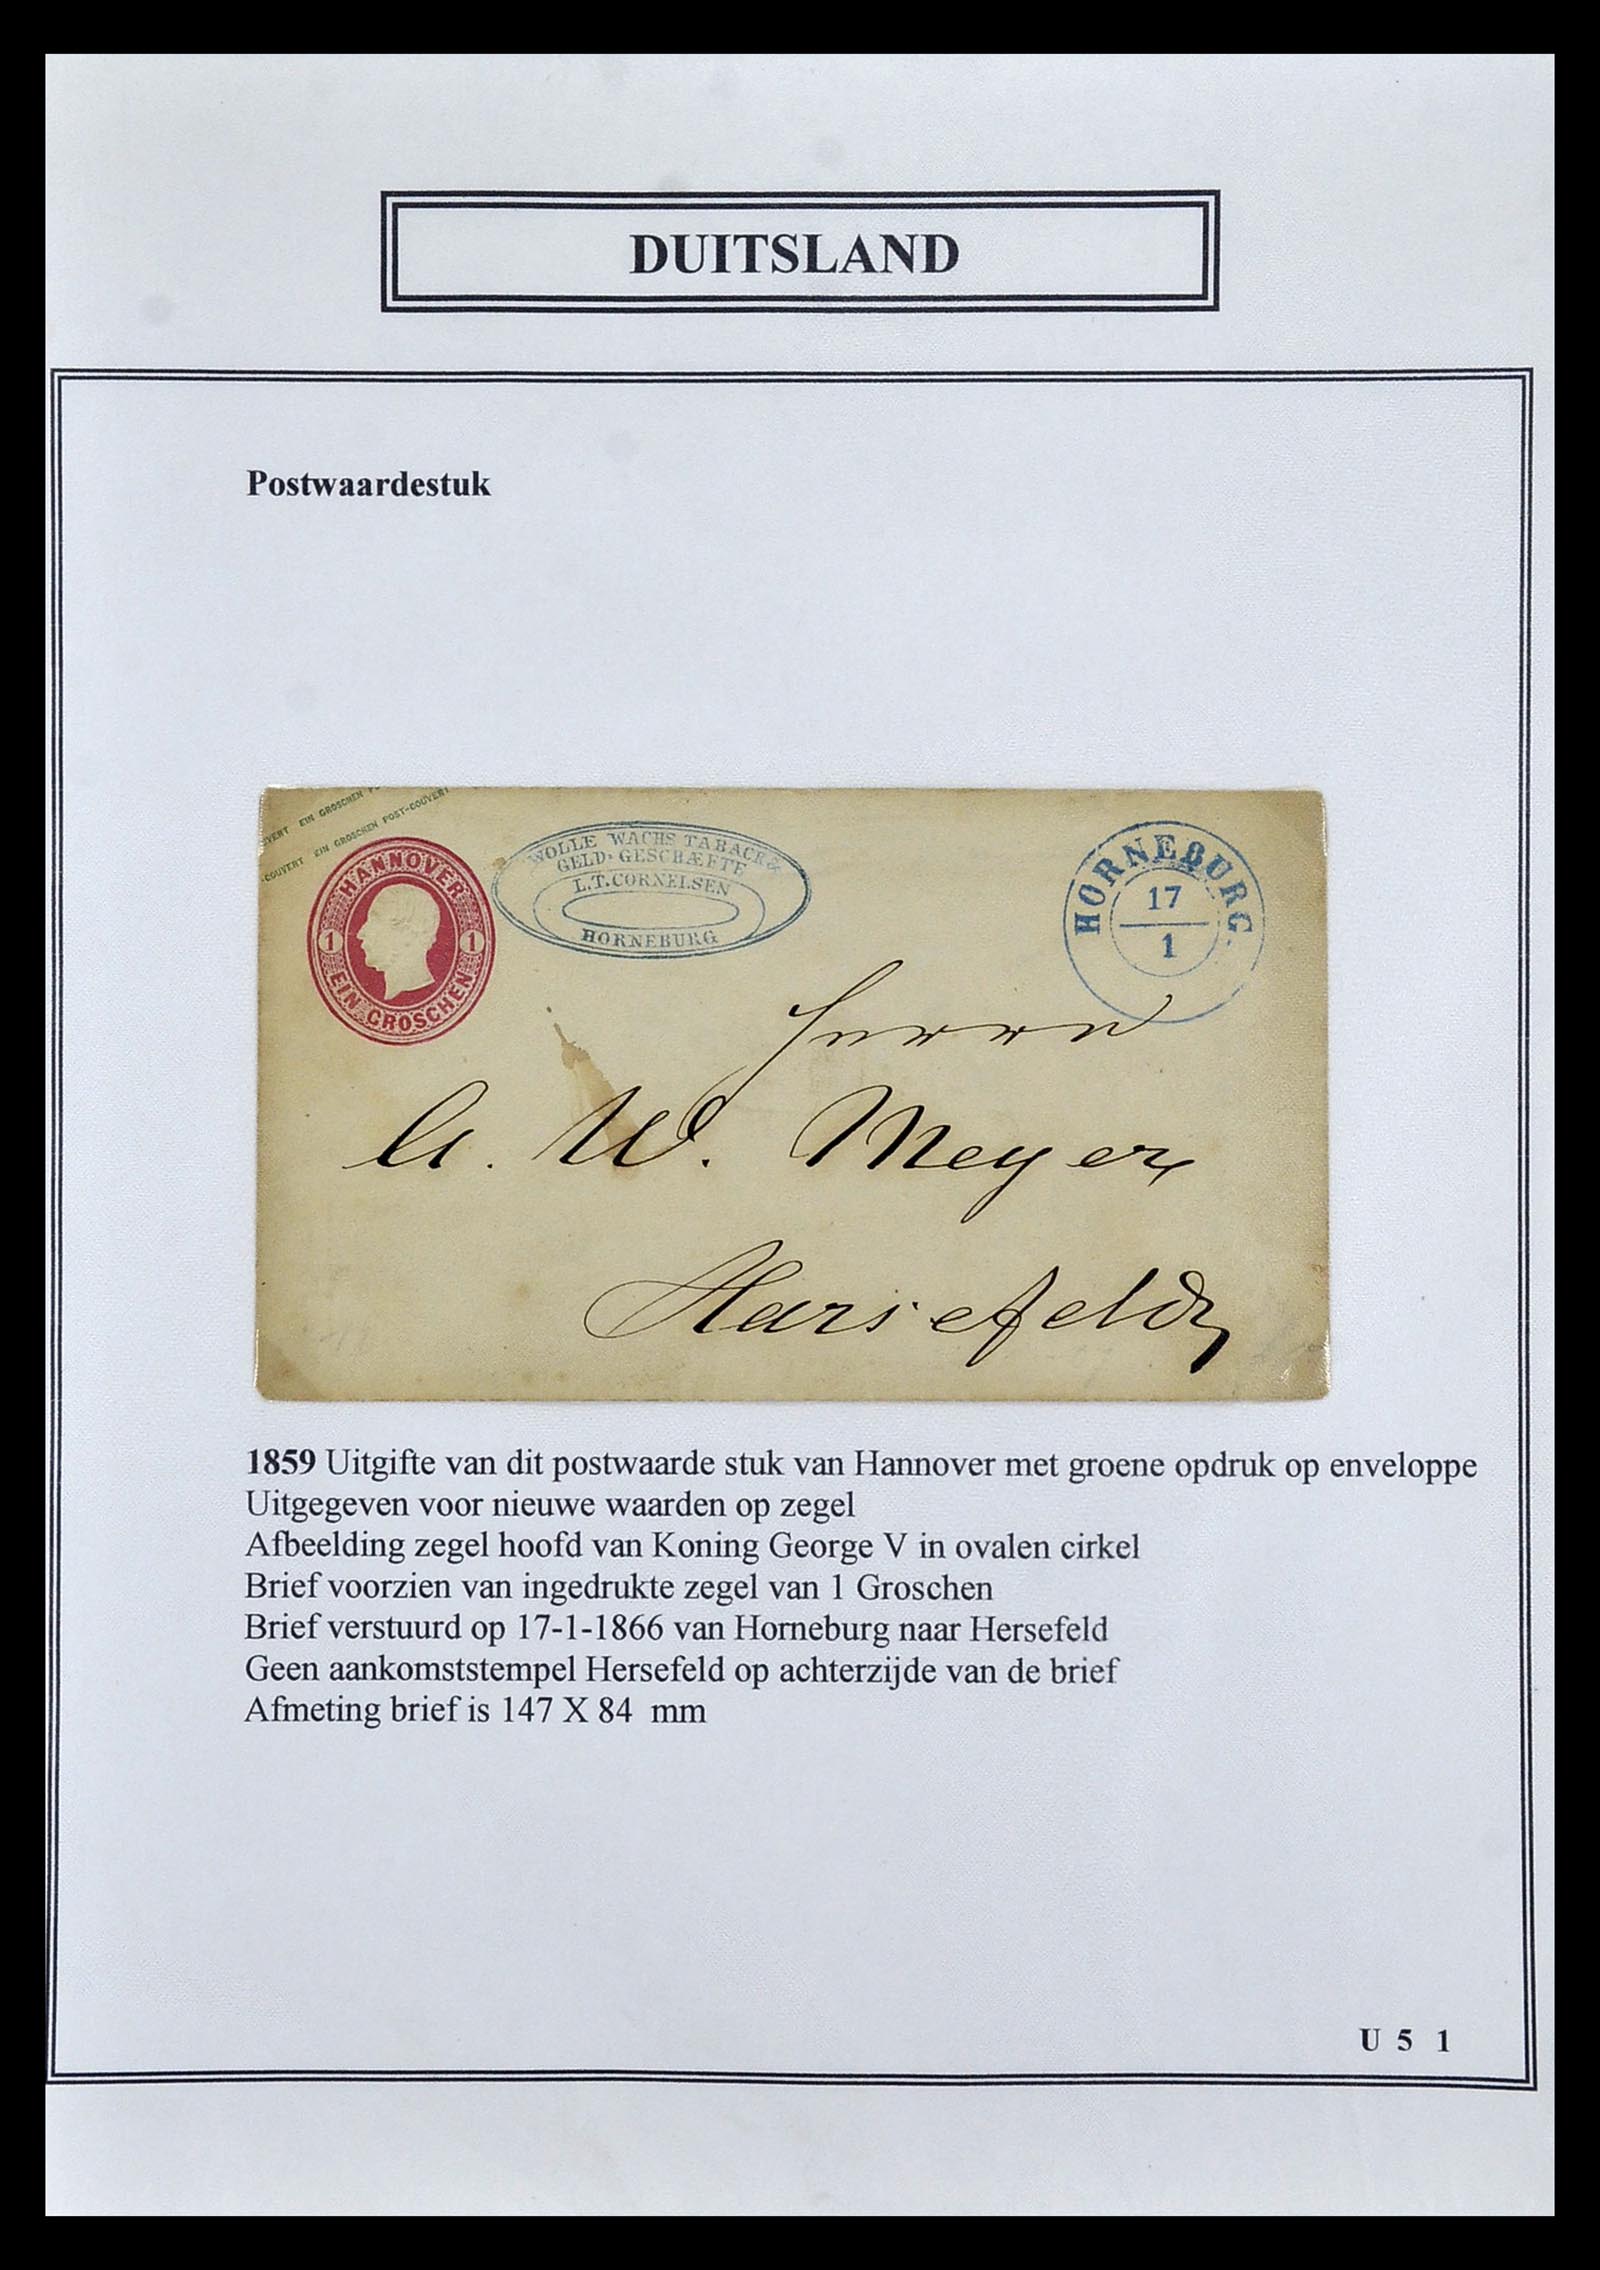 DUITSLAND
Postwaardestuk
EIN GROSCHEN
COUVERT EIN GROSCHEN POST-COUVERT
HANNOVER
1 1
EIN GROSCHEN
WOLLE WACHS TABACK &
GELD-GESCHÆFTE
L.T.CORNELSEN
HORNEBURG
HORNEBURG.
17
1
Herrn
W. Meyer
Harsefeld
1859 Uitgifte van dit postwaarde stuk van Hannover met groene opdruk op enveloppe
Uitgegeven voor nieuwe waarden op zegel
Afbeelding zegel hoofd van Koning George V in ovalen cirkel
Brief voorzien van ingedrukte zegel van 1 Groschen
Brief verstuurd op 17-1-1866 van Horneburg naar Hersefeld
Geen aankomststempel Hersefeld op achterzijde van de brief
Afmeting brief is 147 X 84 mm
U 5 1